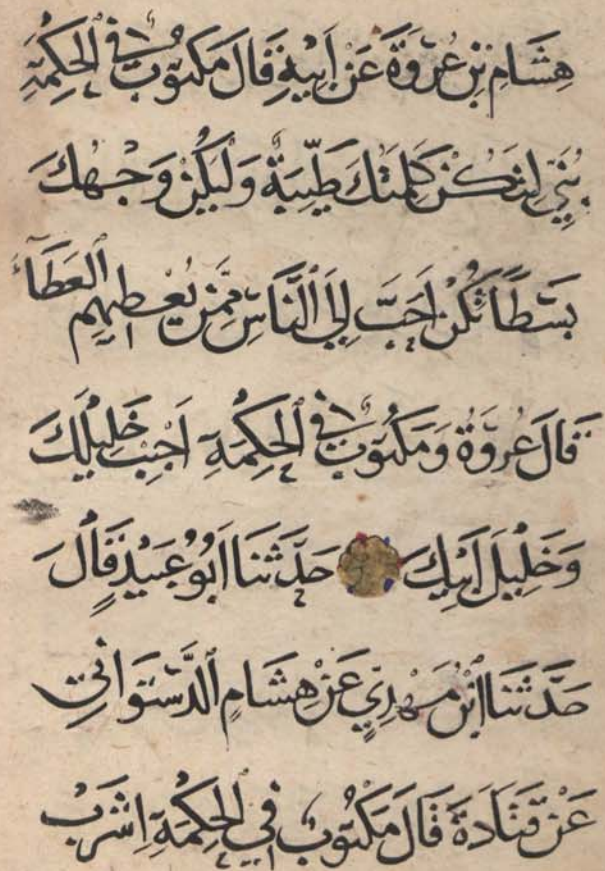 هِشَامِ بْنِ عُرْوَةَ عَنْ أَبِيهِ قَالَ مَكْتُوبٌ فِي الْحِكْمَةِ
بُنَيَّ لِتَكُنْ كَلِمَتُكَ طَيِّبَةً وَلْيَكُنْ وَجْهُكَ
بَسْطًا تَكُنْ أَحَبَّ إِلَى النَّاسِ مِمَّنْ يُعْطِيهِمِ الْعَطَاءَ
قَالَ عُرْوَةُ وَمَكْتُوبٌ فِي الْحِكْمَةِ أَحْبِبْ خَلِيلَكَ
وَخَلِيلَ أَبِيكَ حَدَّثَنَا أَبُو عُبَيْدٍ قَالَ
حَدَّثَنَا ابْنُ مَهْدِيٍّ عَنْ هِشَامٍ الدَّسْتَوَانِيِّ
عَنْ قَتَادَةَ قَالَ مَكْتُوبٌ فِي الْحِكْمَةِ اِشْرَبْ